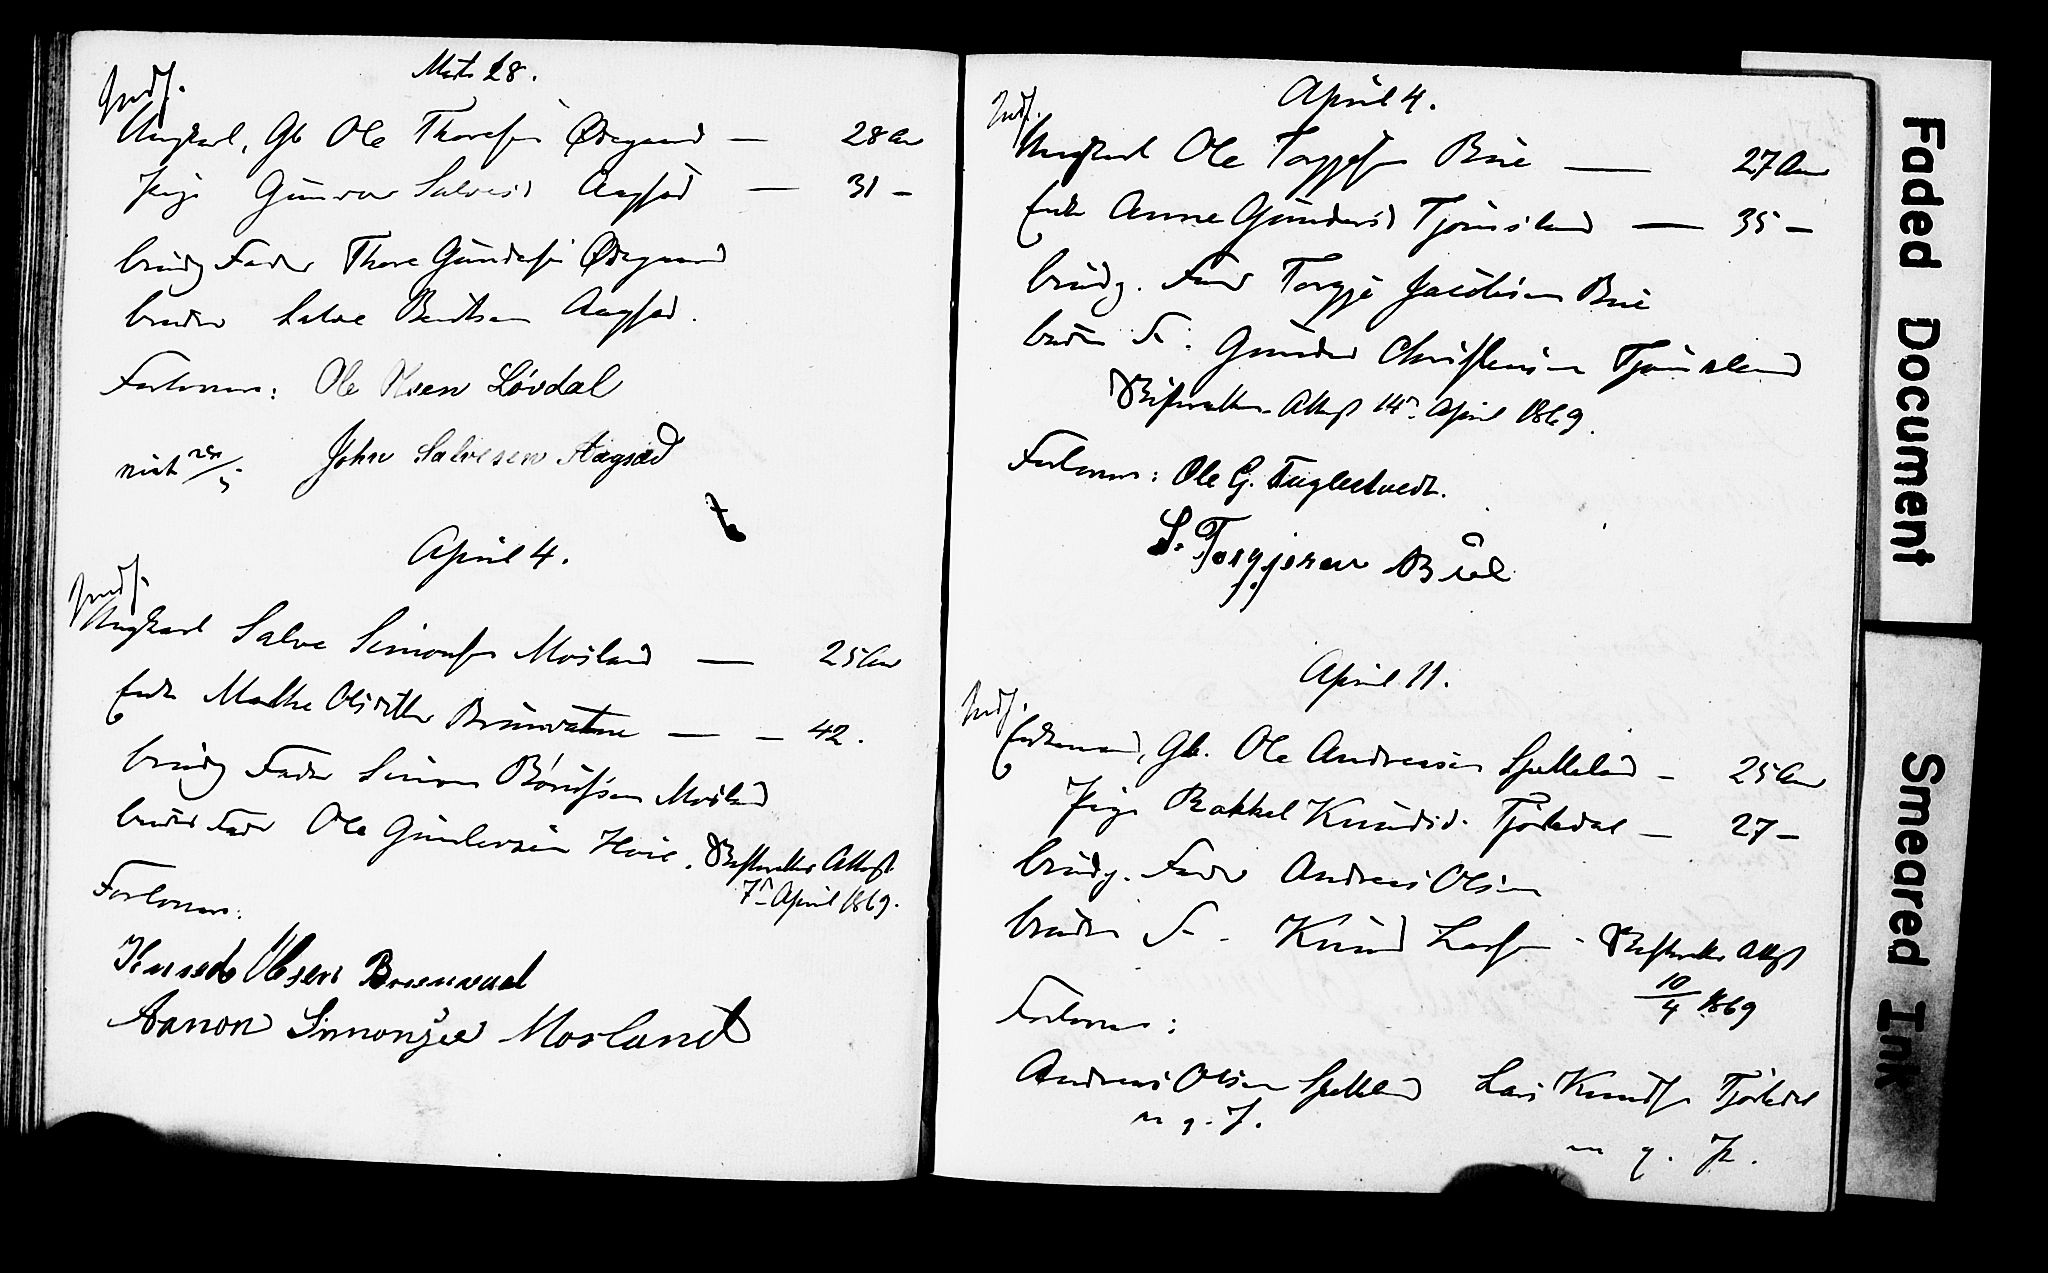 Indf.
Marts 28.
Ungkarl, Gb Ole Thoresen Ødegaard — 28 Aar
Pige Gunvor Salvesd Aagsad — 31 —
brudg Fader Thore Gundersen Ødegaard
bruden Salve Bentsen Aagsad.
Forlovere: Ole Olsen Løvdal
John Salvesen Aagsad
April 4.
Indf.
Ungkarl Salve Simonsen Mosland — 25 Aar
Enke Marthe Olsdatter Brunvatne — — 42.
brudg Fader Simon Mosland
brudens Fader Ole Gundersen Hoie. Skifteretten Attest
7de April 1869.
Forlovere:
Knud Olsen Brunvand
Aanon Simonsen Mosland
Indf.
April 4.
Ungkarl Ole Torgjesen Bue — 27 Aar
Enke Anne Gundersd Tjomsland — 35 —
brudg. Fader Torgje Jacobsen Bue
bruden F. Gunder Christensen Tjomsland
Skifteretten Attest 14de April 1869.
Forlovere: Ole G. Fuglestvedt.
S. Torgjesen Bue
April 11.
Indf.
Enkemand, Gb. Ole Andreasen Spetteland — 25 Aar
Pige Rakkel Knudsd. — 27 —
brudg. Fader Andreas Olsen
bruden F. Knud Larsen. Skifteretten Attest
10/4 1869
Forlovere:
Andreas Olsen Spetteland Lars Knudsen
m. p. P.
m. p. P.
Faded Document
Smeared Ink